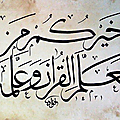 خيركم من
تعلم القرآن وعلمه